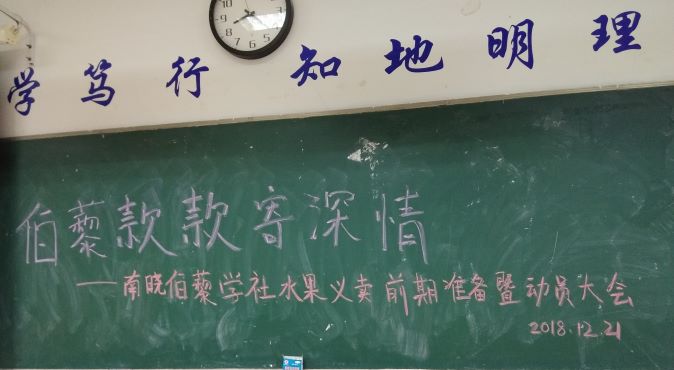 学笃行 知地明理
伯藜款款寄深情
——南晓伯藜学社水果义卖前期准备暨动员大会
2018.12.21